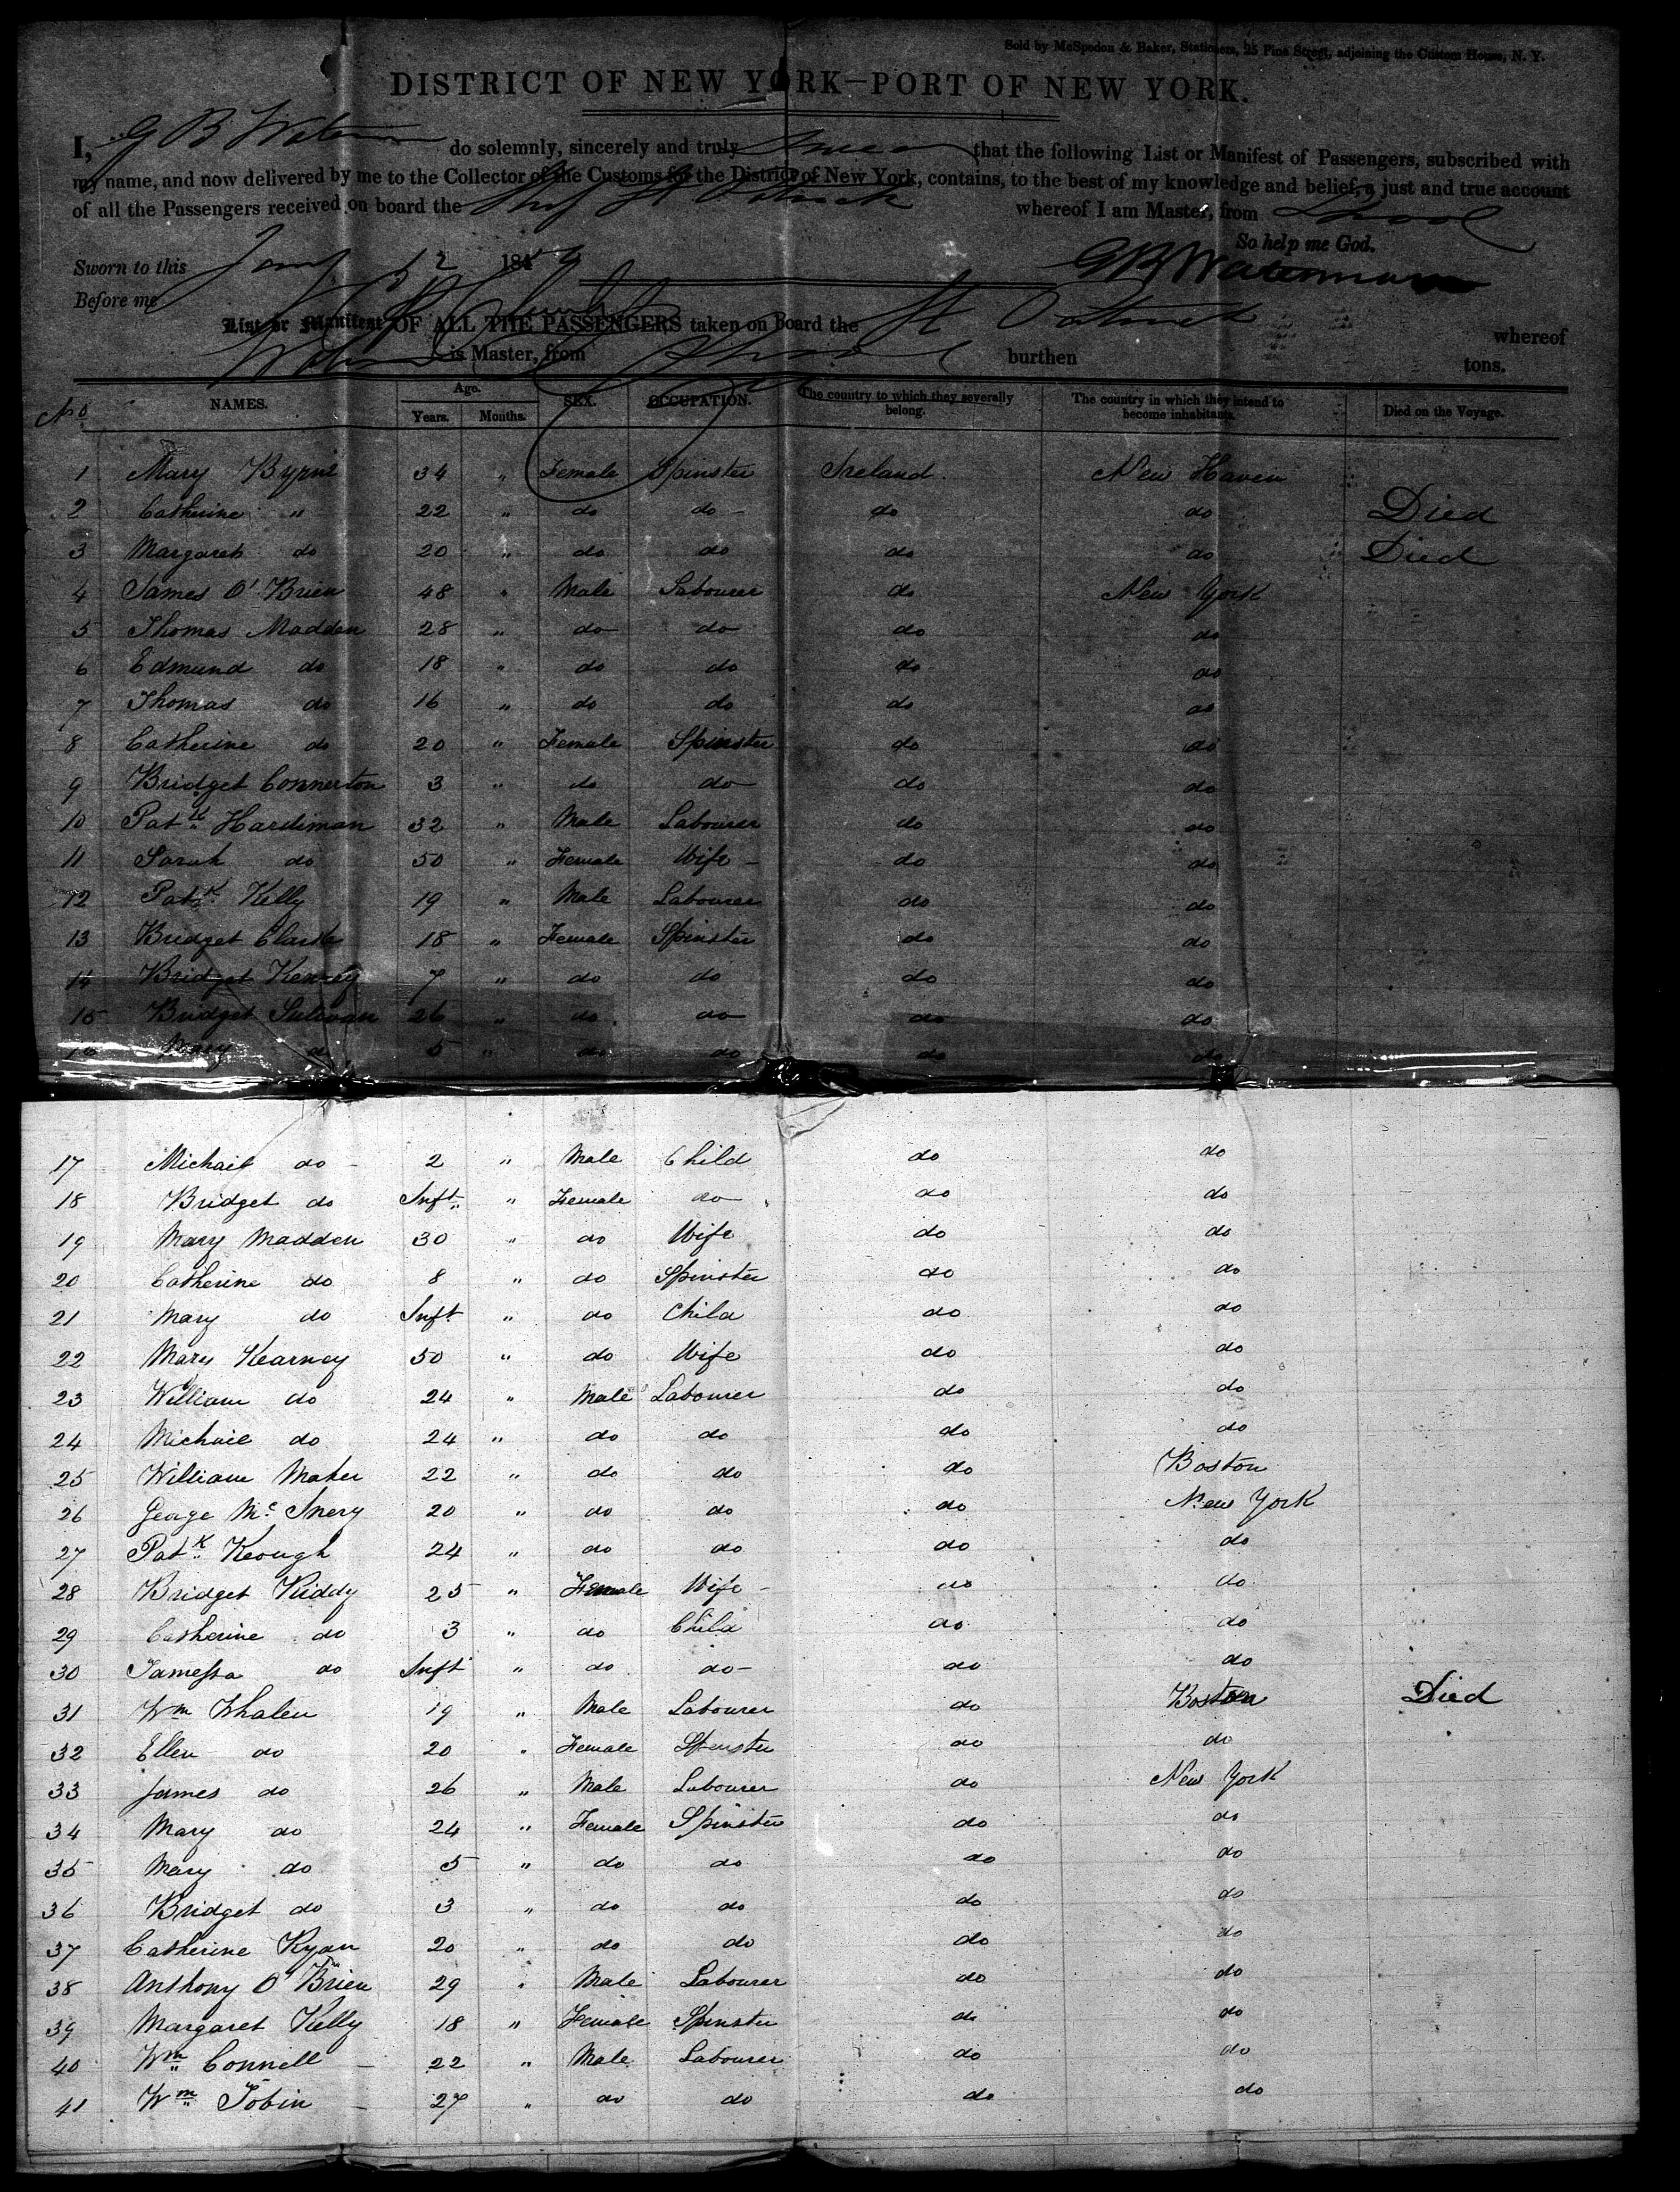 Sold by McSpedon & Baker, Stationers, 25 Pine Street, adjoining the Custom House, N. Y.
DISTRICT OF NEW YORK—PORT OF NEW YORK.
I, G B do solemnly, sincerely and truly that the following List or Manifest of Passengers, subscribed with
my name, and now delivered by me to the Collector of the Customs for the District of New York, contains, to the best of my knowledge and belief, a just and true account
of all the Passengers received on board the Ship St Patrick whereof I am Master, from
So help me God.
Sworn to this Jany 12 1849 GB Waterman
Before me
List or Manifest OF ALL THE PASSENGERS taken on board the St Patrick whereof
is Master, from burthen tons.
No NAMES. Age. Years. Months. SEX. OCCUPATION. The country to which they severally belong. The country in which they intend to become inhabitants. Died on the Voyage.
1 Mary Byrne 34 " Female Spinster Ireland. New Haven
2 Catherine " 22 " do do - do do Died
3 Margaret do 20 " do do do do Died
4 James O'Brien 48 " Male Labourer do New York
5 Thomas Madden 28 " do do do do
6 Edmund do 18 " do do do do
7 Thomas do 16 " do do do do
8 Catherine do 20 " Female Spinster do do
9 Bridget Connerton 3 " do do do do
10 Patk Hardiman 32 " Male Labourer do do
11 Sarah do 50 " Female Wife - do do
12 Patk Kelly 19 " Male Labourer do do
13 Bridget Clarke 18 " Female Spinster do do
14 Bridget 7 " do do do do
15 Bridget Sulivan 26 " do do do do
16 Mary do 5 " do do do do
17 Michael do - 2 " Male Child do do
18 Bridget do Inft " Female do do do
19 Mary Madden 30 " do Wife do do
20 Catherine do 8 " do Spinster do do
21 Mary do Inft " do Child do do
22 Mary Kearney 50 " do Wife do do
23 William do 24 " Male Labourer do do
24 Michael do 24 " do do do do
25 William Maher 22 " do do do Boston
26 George Mc 20 " do do do New York
27 Patk Keough 24 " do do do do
28 Bridget 25 " Female Wife - do do
29 Catherine do 3 " do Child do do
30 do Inft " do do - do do
31 Wm Whalen 19 " Male Labourer do Boston Died
32 Ellen do 20 " Female Spinster do do
33 James do 26 " Male Labourer do New York
34 Mary do 24 " Female Spinster do do
35 Mary do 5 " do do do do
36 Bridget do 3 " do do do do
37 Catherine Ryan 20 " do do do do
38 Anthony O'Brien 29 " Male Labourer do do
39 Margaret Kelly 18 " Female Spinster do do
40 Wm Connell - 22 " Male Labourer do do
41 Wm Tobin - 27 " do do do do